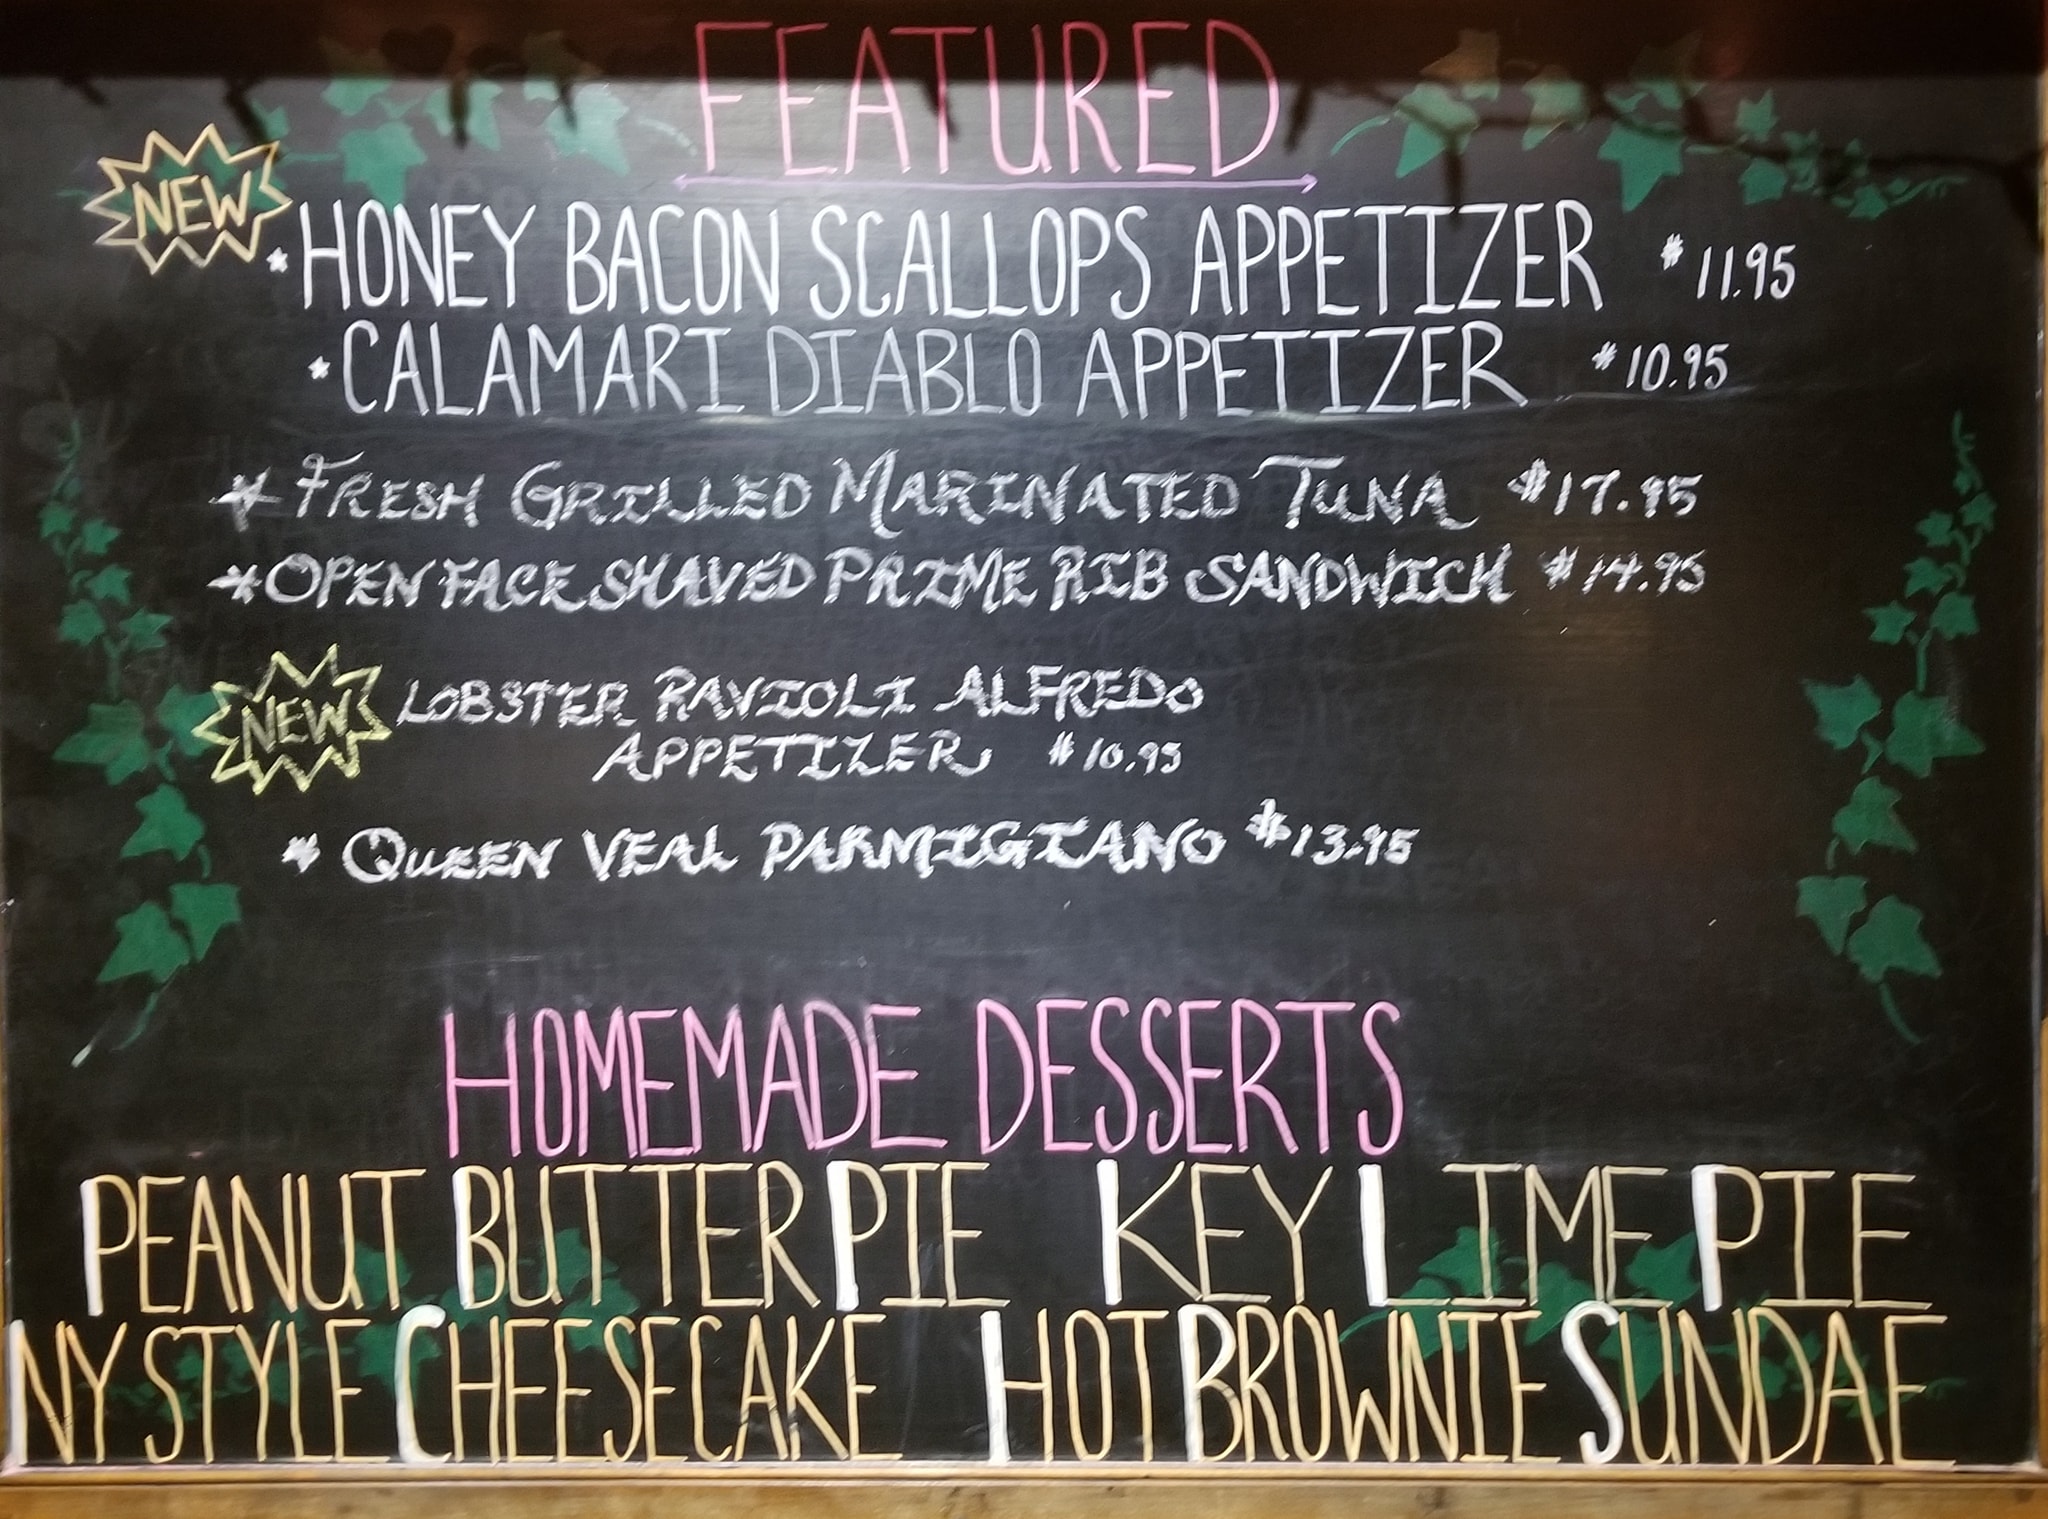 FEATURED
NEW
* HONEY BACON SCALLOPS APPETIZER $11.95
* CALAMARI DIABLO APPETIZER $10.95
* FRESH GRILLED MARINATED TUNA $17.95
* OPEN FACE SHAVED PRIME RIB SANDWICH $14.95
NEW LOBSTER RAVIOLI ALFREDO
APPETIZER $10.95
* QUEEN VEAL PARMIGIANO $13.95
HOMEMADE DESSERTS
PEANUT BUTTER PIE KEY LIME PIE
NY STYLE CHEESECAKE HOT BROWNIE SUNDAE